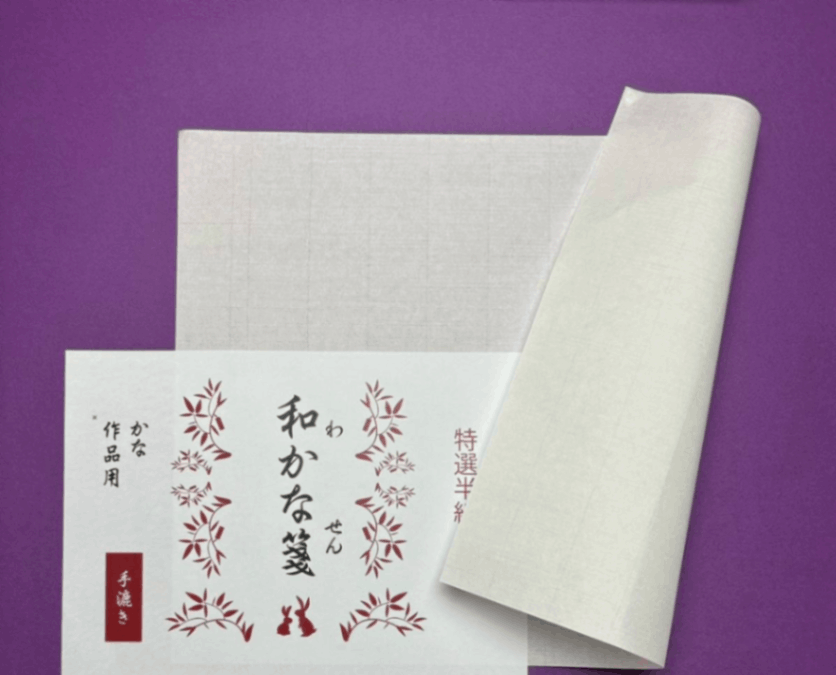 特選半紙
和かな箋
わ
せん
かな
作品用
手漉き